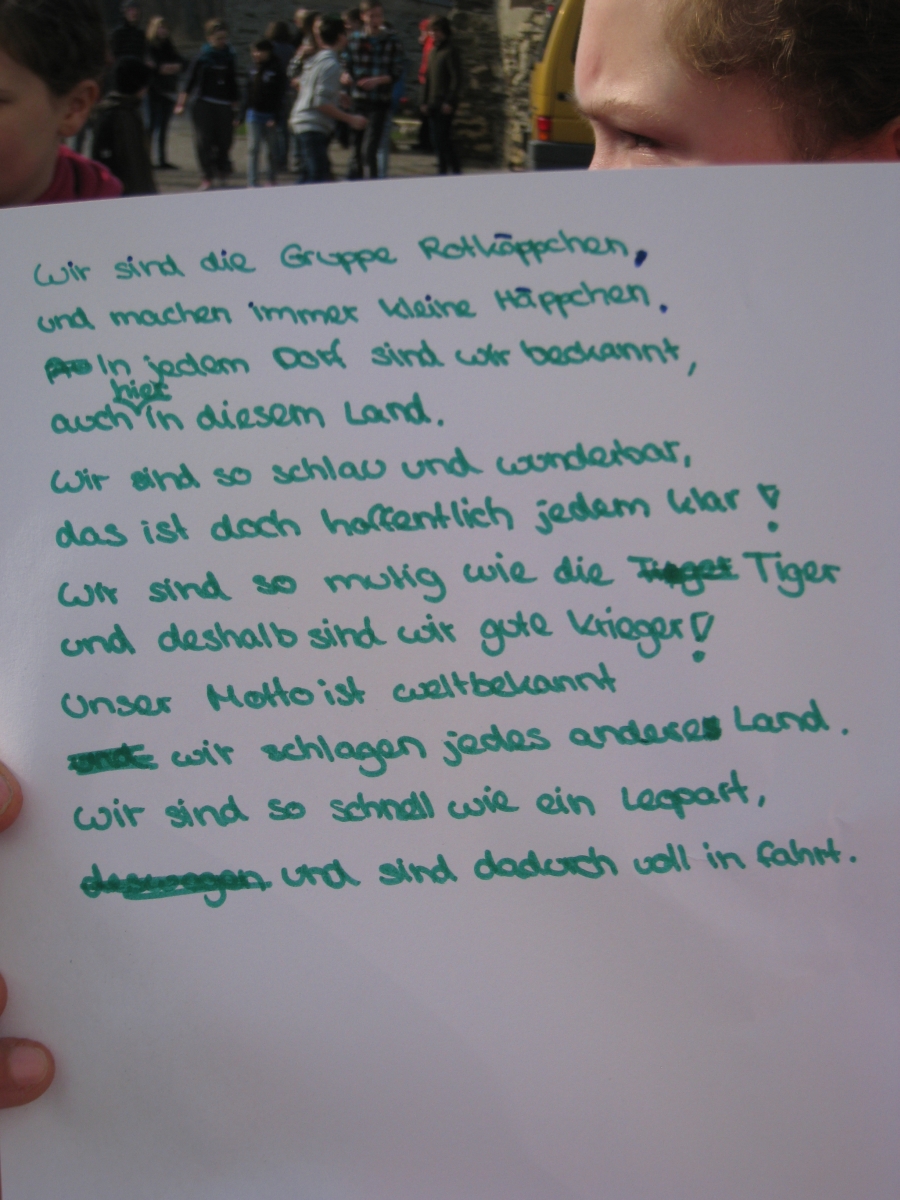 Wir sind die Gruppe Rotkäppchen,
und machen immer kleine Häppchen.
In jedem Dorf sind wir bekannt,
auch hier in diesem Land.
Wir sind so schlau und wunderbar,
das ist doch hoffentlich jedem klar!
Wir sind so mutig wie die Tiger
und deshalb sind wir gute Krieger!
Unser Motto ist weltbekannt
wir schlagen jedes andere Land.
Wir sind so schnell wie ein Leopart,
und sind dadurch voll in fahrt.